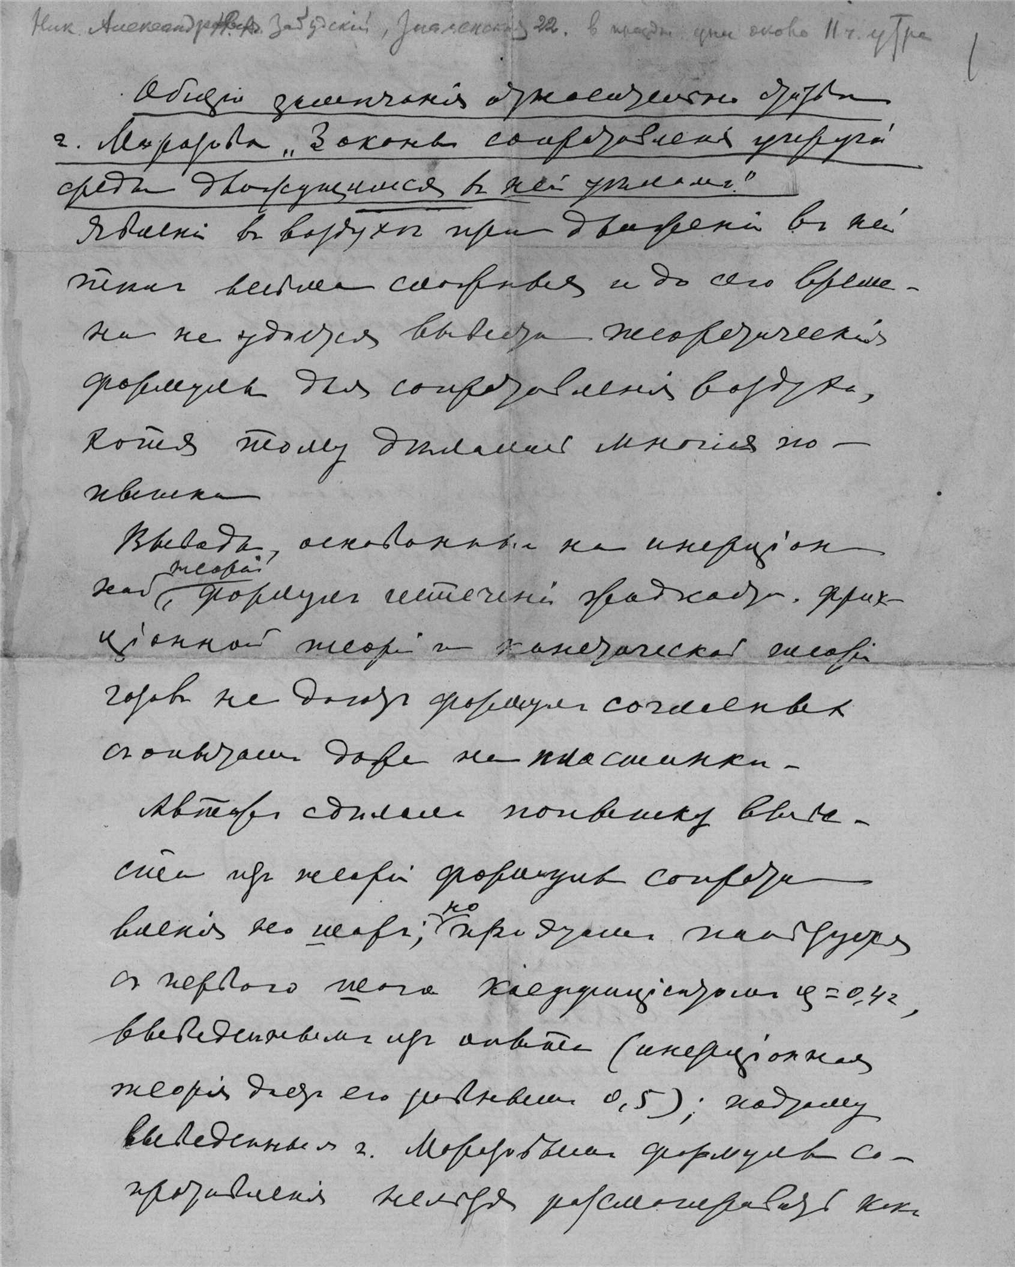 Ник. Александрович Забудский, Знаменская 22. в праздн. дни около 11 ч. утра
Общія замѣчанія относительно статьи
г. Морозова „Законы сопротивленія упругой
среды движущимся въ ней тѣламъ."
Явленія въ воздухѣ при движеніи въ ней
тѣлъ весьма сложныя и до сего време-
ни не удается вывести теоретическія
формулы для сопротивленія воздуха,
хотя тому дѣлались многія по-
пытки
Выводы, основанные на инерціон
ной теоріи, формулѣ истеченія жидкости, фрик-
ціонной теоріи и кинетической теоріи
газовъ не даютъ формулъ согласныхъ
съ опытами даже на пластинки-
Авторъ сдѣлалъ попытку выве-
сти изъ теоріи формулы сопроти
вленія на шаръ; но при этомъ пользуется
съ перваго шага коеффиціентомъ = 0,42,
выведеннымъ изъ опыта (инерціонная
теорія даетъ его равнымъ 0,5); поэтому
выведенныя г. Морозовымъ формулы со-
противленія нельзя разсматривать какъ